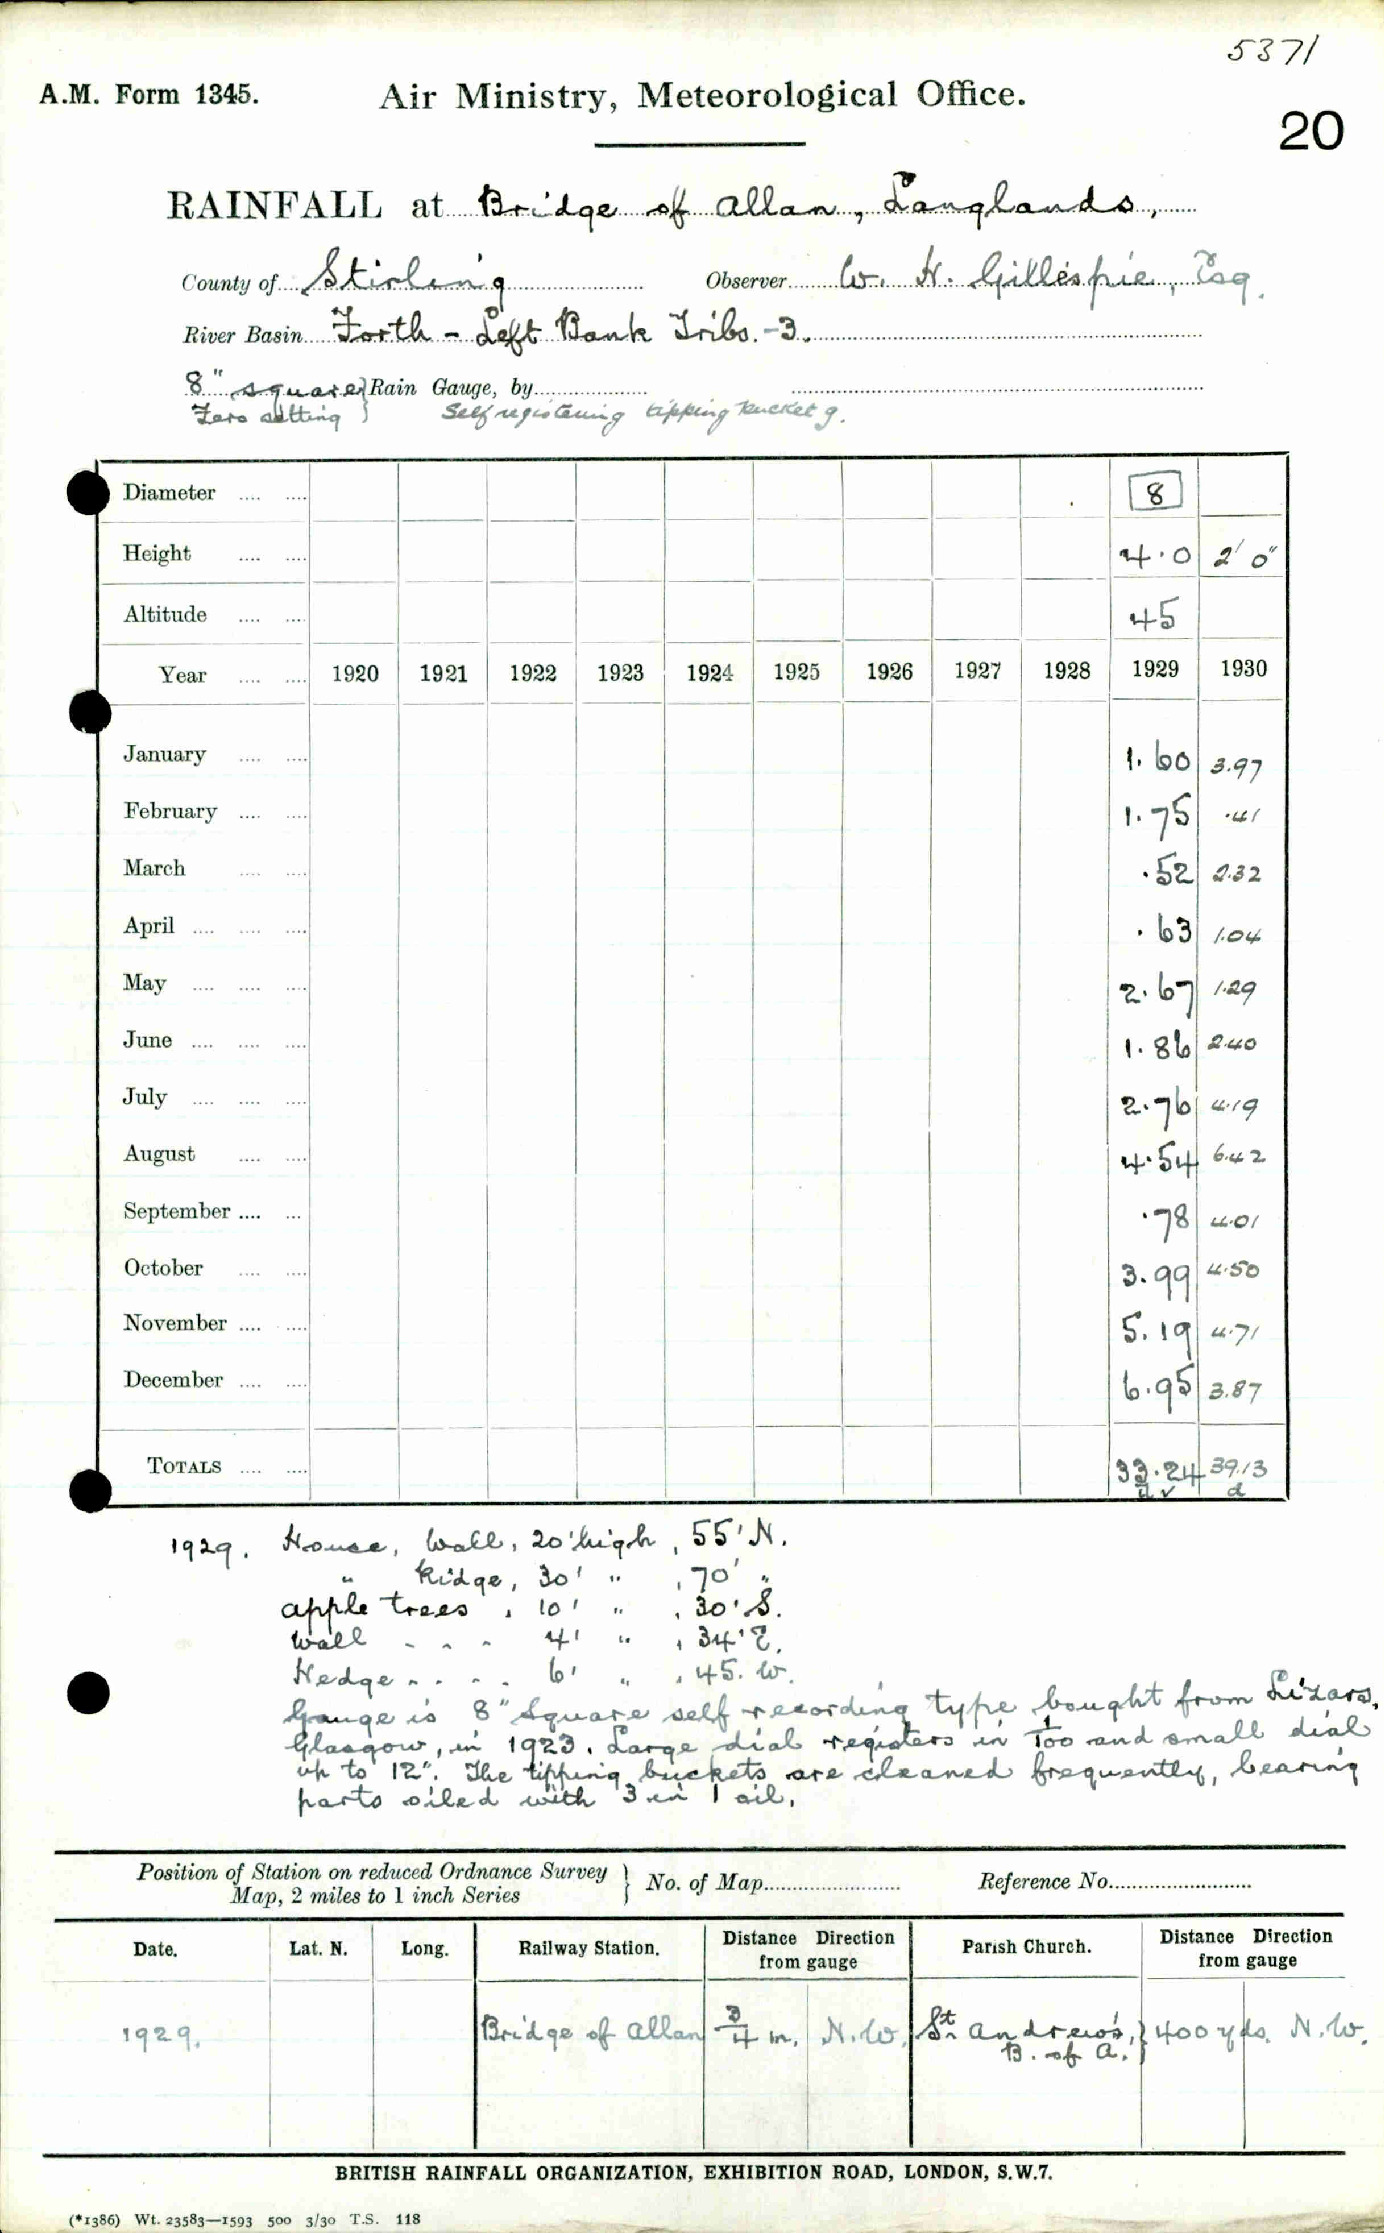 5371
A.M. Form 1345.
Air Ministry, Meteorological Office.
20
RAINFALL at Bridge of Allan, Langlands,
County of Stirling Observer W. H. Gillespie, Esq.
River Basin Forth - Left Bank Tribs. -3.
8" square } Rain Gauge, by
Zero setting } Self registering tipping bucket g.
Diameter .... .... 8
Height .... .... 4.0 2' 0"
Altitude .... .... 45
Year .... .... 1920 1921 1922 1923 1924 1925 1926 1927 1928 1929 1930
January .... .... 1.60 3.97
February .... .... 1.75 .41
March .... .... .52 2.32
April .... .... .... .63 1.04
May .... .... .... 2.67 1.29
June .... .... .... 1.86 2.40
July .... .... .... 2.76 4.19
August .... .... 4.54 6.42
September .... .... .78 4.01
October .... .... 3.99 4.50
November .... .... 5.19 4.71
December .... .... 6.95 3.87
TOTALS .... .... 33.24 39.13
1929. House, Wall, 20' high, 55' N.
" Ridge, 30' " , 70' "
apple trees , 10' " , 30' S.
Wall - - - 4' " , 34' E.
Hedge - - - 6' " , 45. W.
Gauge is 8" Square self recording type bought from Lizars,
Glasgow, in 1923. Large dial registers in 1/100 and small dial
up to 12". The tipping buckets are cleaned frequently, bearing
parts oiled with 3 in 1 oil.
Position of Station on reduced Ordnance Survey } No. of Map Reference No.
Map, 2 miles to 1 inch Series
Date. Lat. N. Long. Railway Station. Distance Direction from gauge Parish Church. Distance Direction from gauge
1929. Bridge of Allan 3/4 m. N.W. St. Andrew's, } 400 yds. N.W.
B. of A.
BRITISH RAINFALL ORGANIZATION, EXHIBITION ROAD, LONDON, S.W.7.
(*1386) Wt. 23583—1593 500 3/30 T.S. 118